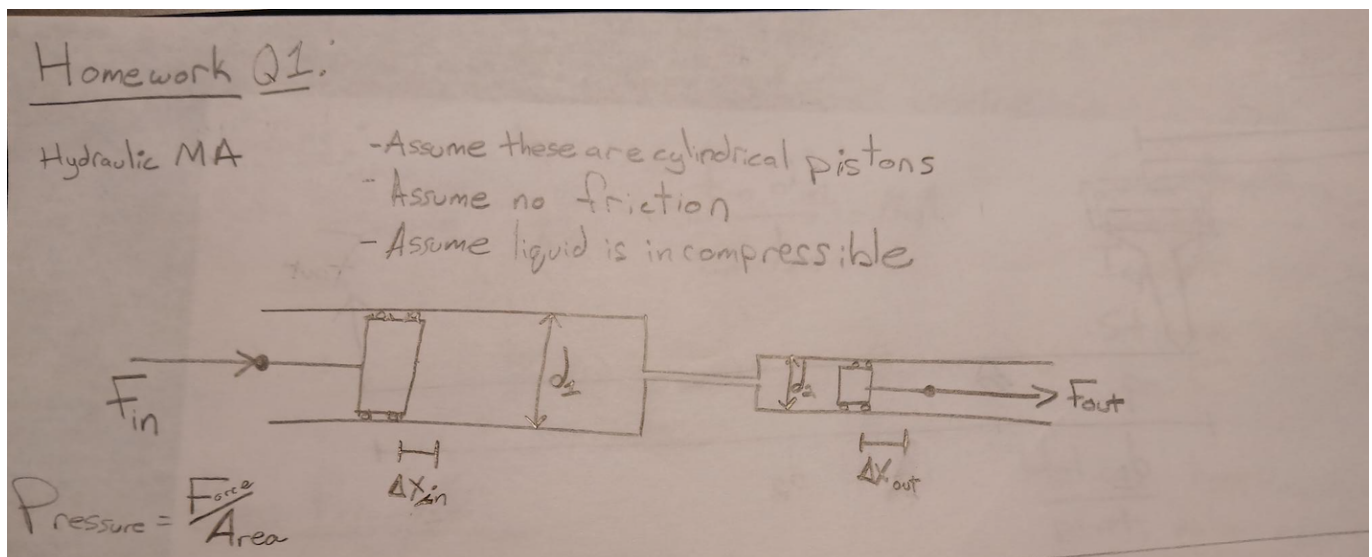 Homework Q1:
Hydraulic MA
-Assume these are cylindrical pistons
-Assume no friction
-Assume liquid is incompressible
Fin
d1
d2
Fout
ΔXin
ΔXout
Pressure = Force/Area